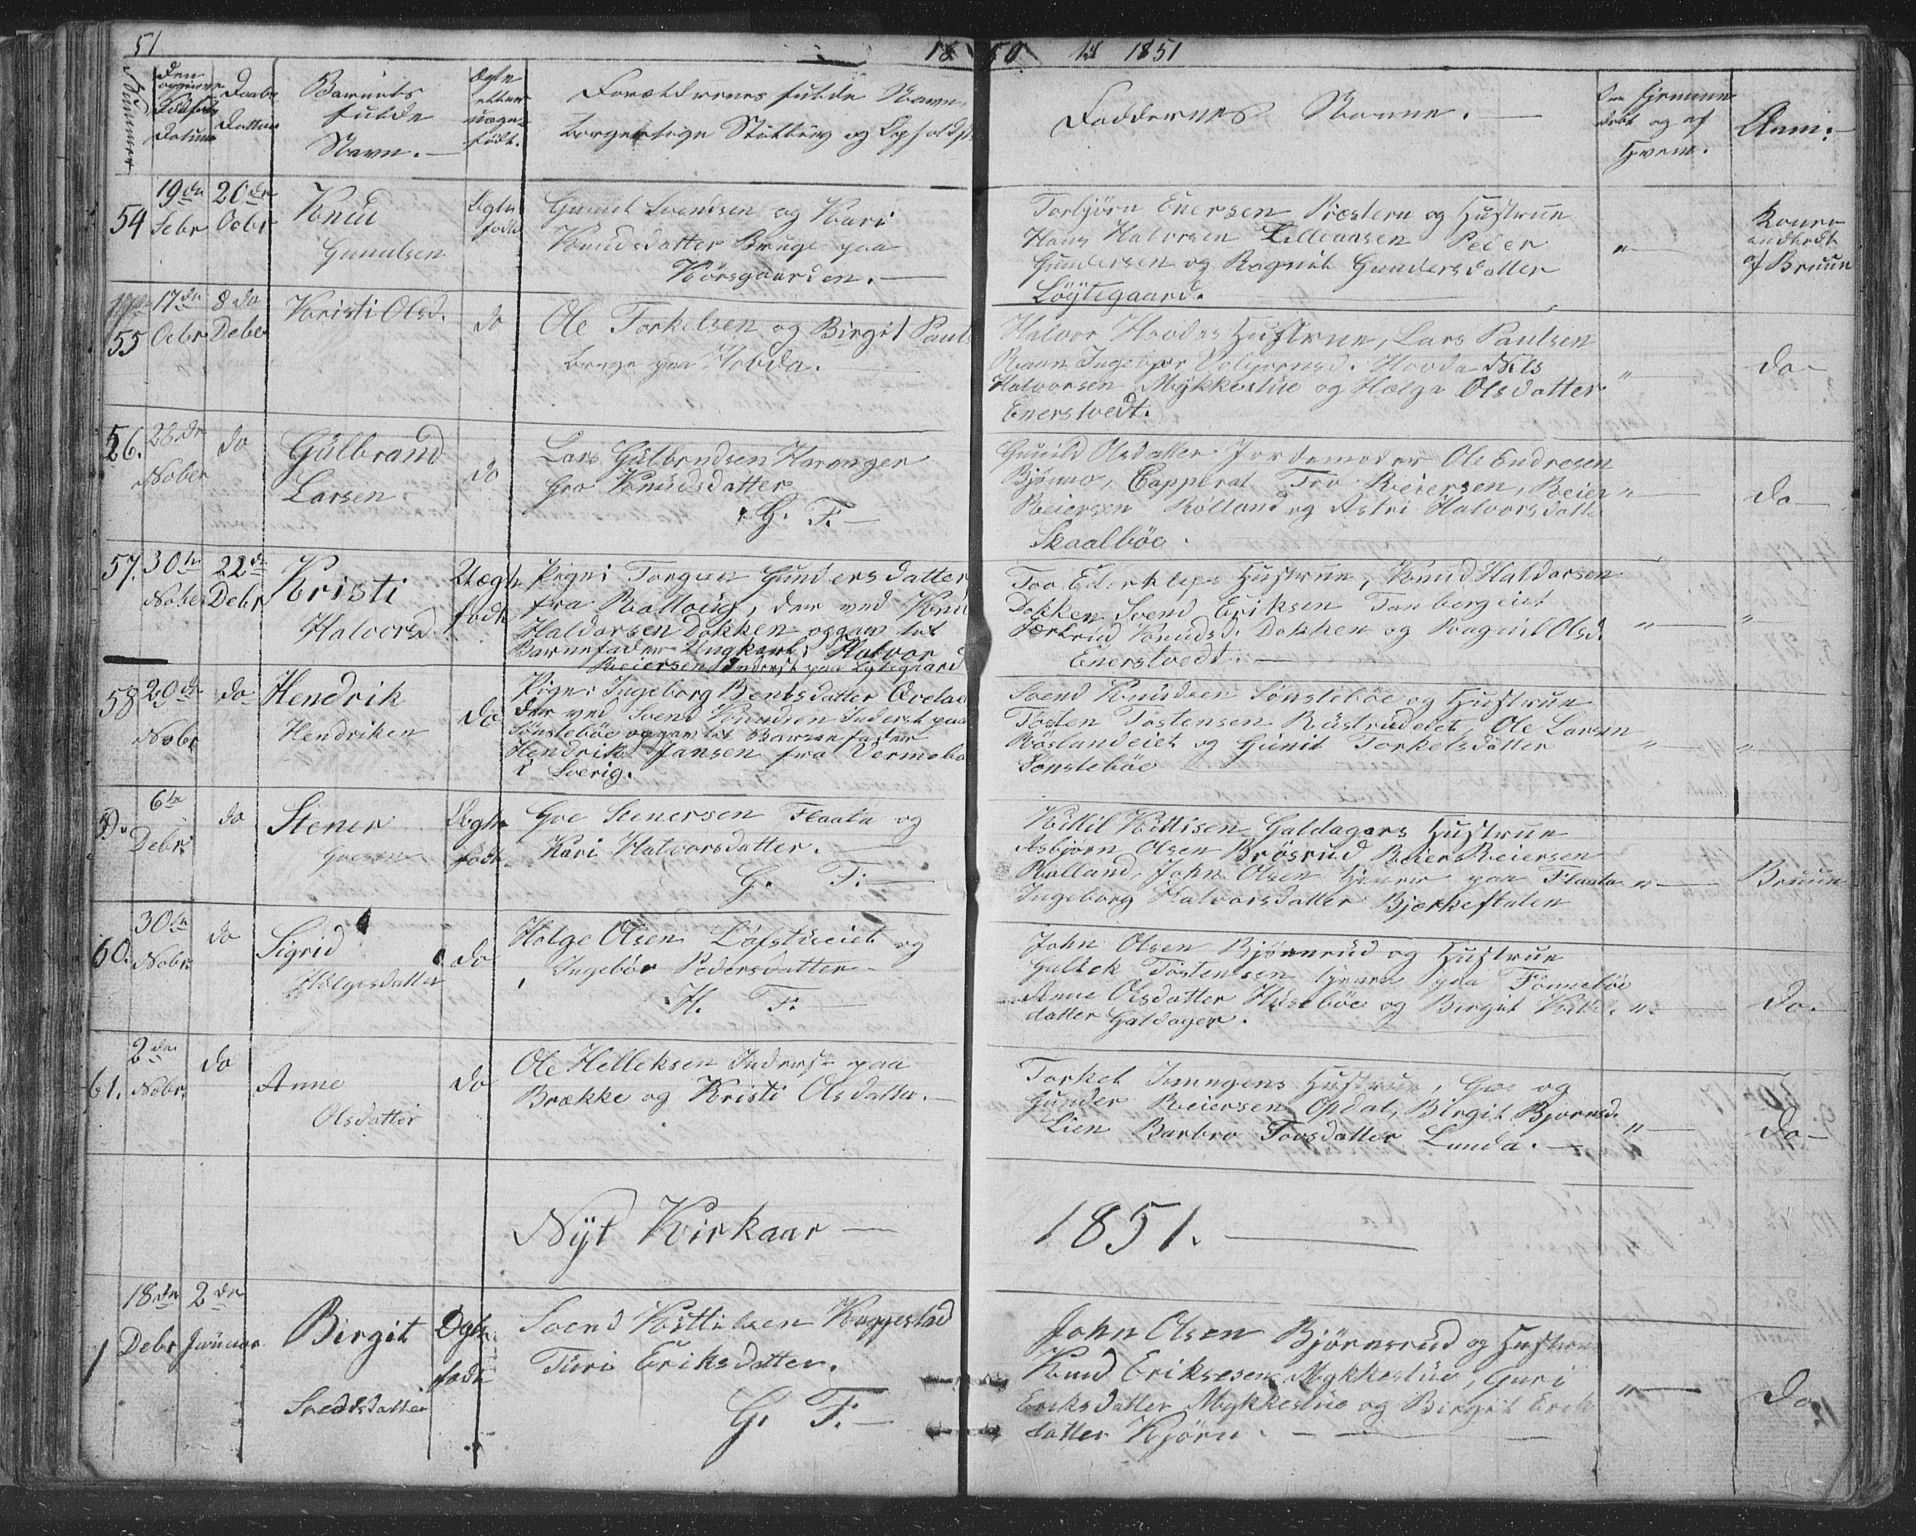 51
1850 til 1851
Nummer
Den
Datum
Daabs
Datum
Barnets
fulde
Navn.
Ægte
eller
uægte
født.
Forældrenes fulde Navn
borgerlige Stilling og Opholds
Faddernes Navne.
Om Hjemme
døbt og af
Hvem.
Anm:
54
19de
Febr
20de
Octbr
Knud
Gunulsen
Ægte
født
Gunul Svendsen og Kari
Knudsdatter Bruge paa
Korsgaarden.
Torbjørn Enersen Præstern og Hustrue
Hans Halvorsen Lilleaasen Peder
Gundersen og Ragnil Gundersdatter
Løÿtegaard.
"
Kone
indledt
af Bruun
55
17de
Ocbr
8 do
Deber
Kristi Olsd.
do
Ole Torkelsen og Birgit Pauls
bruge paa Hovda.
Halvor Hovdas Hustrue, Lars Paulsen
Raan Ingebør Hovda Nils
Halvorsen Mykkestue og Hælge Olsdatter
Enerstvedt.
"
do
56.
28de
Nober
do
Gülbrand
Larsen
do
Lars Gülbrndsen Haranger
Gro Knudsdatter
G. F.
Gunild Olsdatter Jordemoder Ole Endresen
Bjønno, Copperal Tro Reiersen, Reier
Reiersen Rolland og Astri Halvorsdatte
Skaalbøe.
"
do
57.
30te
Nober
22de
Debr
Kristi
Halvorsd
Uægte
født
Pige: Torgun Gundersdatter
fra Rolloug, der ved Knud
Haldorsen Dokken opgav til
Barnefader Ungkarl: Halvor
Reiersen Inderst paa Løtegaard
Too Hustrue, Knud Haldorsen
Dokken Svend Eriksen Tanbergeiet
Knudsd. Dokken og Ragnil Olsd.
Enerstvedt.
"
"
58
29de
Nobr
do
Hendrik
Hendriksen
do
Pige: Ingeborg Bentsdatter
der ved Svend Knudsen Inderst paa
Sønstebøe opgav til Barnefader
Hendrik Jansen fra Vermeland
i Sverig.
Svend Knudsen Sønstebøe og Hustrue
Tosten Tostensen Rustrudeiet, Ole Larsen
Røslandeiet og Gunil Torkelsdatter
Sønstebøe
"
"
59.
6te
Debr
do
Stener
Goesen
Ægte
født.
Goe Stenersen Flaata og
Kari Halvorsdatter.
G. F.
Kittil Kittilsen Galdagers Hustrue
Asbjørn Olsen Brøsrud, Reier Reiersen
Rolland, John Olsen tjener paa Flaata
Ingeborg Halvorsdatter Bjerkeflaten
"
Bruun
60.
30te
Nobr
do
Sigrid
Hølgesdatter
do
Holge Olsen Lofstueiet og
Ingebør Pedersdatter
H. F.
John Olsen Bjørnerud og Hustrue
Gullek Tostensen tjener paa Fønnebøe
Anne Olsdatter Husebøe og Birgit Kittils
datter Galdager.
"
do.
61.
2den
Nobr.
do
Anne
Olsdatter
do
Ole Helleksen Inderst paa
Brække og Kristi Olsdatter.
Torkel Imingens Hustrue, Goe og
Gunder Reiersen Opdal, Birgit Bjørnsd.
Lien Barbro Tovsdatter Lunda.
"
do
Nÿt Kirkaar
1851.
1
18de
Debr
2de
Januar
Birgit
Svedsdatter
Ægte
født
Svend Kittilsen Koppestad
Turi Eriksdatter.
G. F.
John Olsen Bjørnerud og Hustrue
Knud Eriksesen Mykkestue, Guri
Eriksdatter Mykkestue og Birgit Eriks
datter Kjørn.
"
do